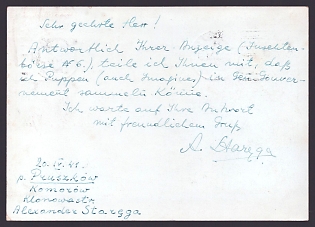 Sehr geehrter Herr!
Antwortlich Ihrer Anzeige (Insekten-
börse № 6.), teile ich Ihnen mit, daß
ich Puppen (auch Imagines) in Gen.Gouver-
nement sammeln könne.
Ich warte auf Ihre Antwort
mit freundlichem Gruß
A. Staręga
20.IV.41.
p. Pruszków
Komorów
Klonowa
Alexander Staręga